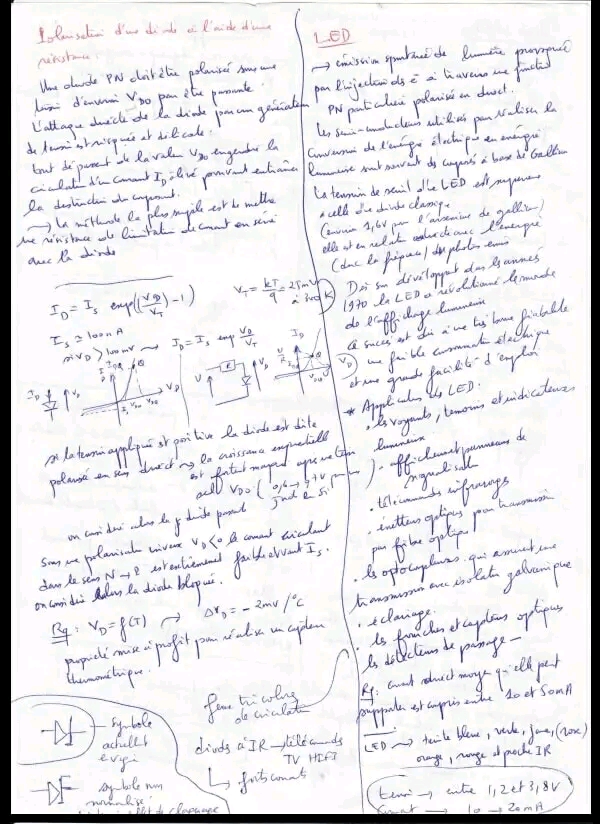 Polarisation d'une diode à l'aide d'une
résistance
Une diode PN doit être polarisée sous une
tension d'environ VD0 pour être passante.
L'attaque directe de la diode par un générateur
de tension est risquée et délicate.
tout dépassant de la valeur VD0 engendre la
circulation d'un courant ID élevé pouvant entraîner
la destruction du composant.
→ la méthode la plus simple est de mettre
une résistance de limitation de courant en série
avec la diode
ID = IS exp((VD/VT) - 1) VT = kT/q = 25mV
à 300 K
IS ≃ 100nA
si VD > 100mV → ID = IS exp VD/VT
si la tension appliquée est positive la diode est dite
polarisée en sens direct → la croissance exponentielle
est fortement marquée après
VD0
on considère alors la diode passante
Sous une polarisation inverse VD<0 le courant circulant
dans le sens N → P est extrêmement faible
on considère alors la diode bloquée.
Rq : VD = f(T) → ΔVD = - 2mV/°C
propriété mise à profit pour réaliser un capteur
thermométrique.
symbole
actuel
symbole non
normalisé
feux tricolores
de circulation
diods à IR → télécommands
TV HIFI
LED
→ émission spontanée de lumière provoquée
par l'injection de é à travers une jonction
PN particulière polarisée en direct.
Les semi-conducteurs utilisés pour réaliser la
conversion de l'énergie électrique en énergie
lumineuse sont souvent des composés à base de Gallium
La tension de seuil d'une LED est supérieure
à celle d'une diode classique
(environ 1,6V pour l'arséniure de gallium)
elle est en relation directe avec l'énergie
(donc la fréquence) des photons émis
De son développement dans les années
1970 la LED a révolutionné le monde
de l'affichage lumineux
Ce succès est dû à une très bonne fiabilité
une faible consommation électrique
et une grande facilité d'emploi
* Application des LED :
. les voyants, témoins et indicateurs
lumineux
. affichage et panneaux de
signalisation
. télécommands infrarouges
. émetteurs optiques pour transmission
par fibre optique
. les optocoupleurs qui assurent une
transmission avec isolation galvanique
. éclairage.
. les fourches et capteurs optiques
les détecteurs de passage -
Rq: courant direct moyen qu'elle peut
supporter est compris entre 10 et 50mA
LED → teinte bleue, verte, jaune, (rose)
orange, rouge et proche IR
tension → entre 1,2 et 3,8V
courant → 10 → 20mA